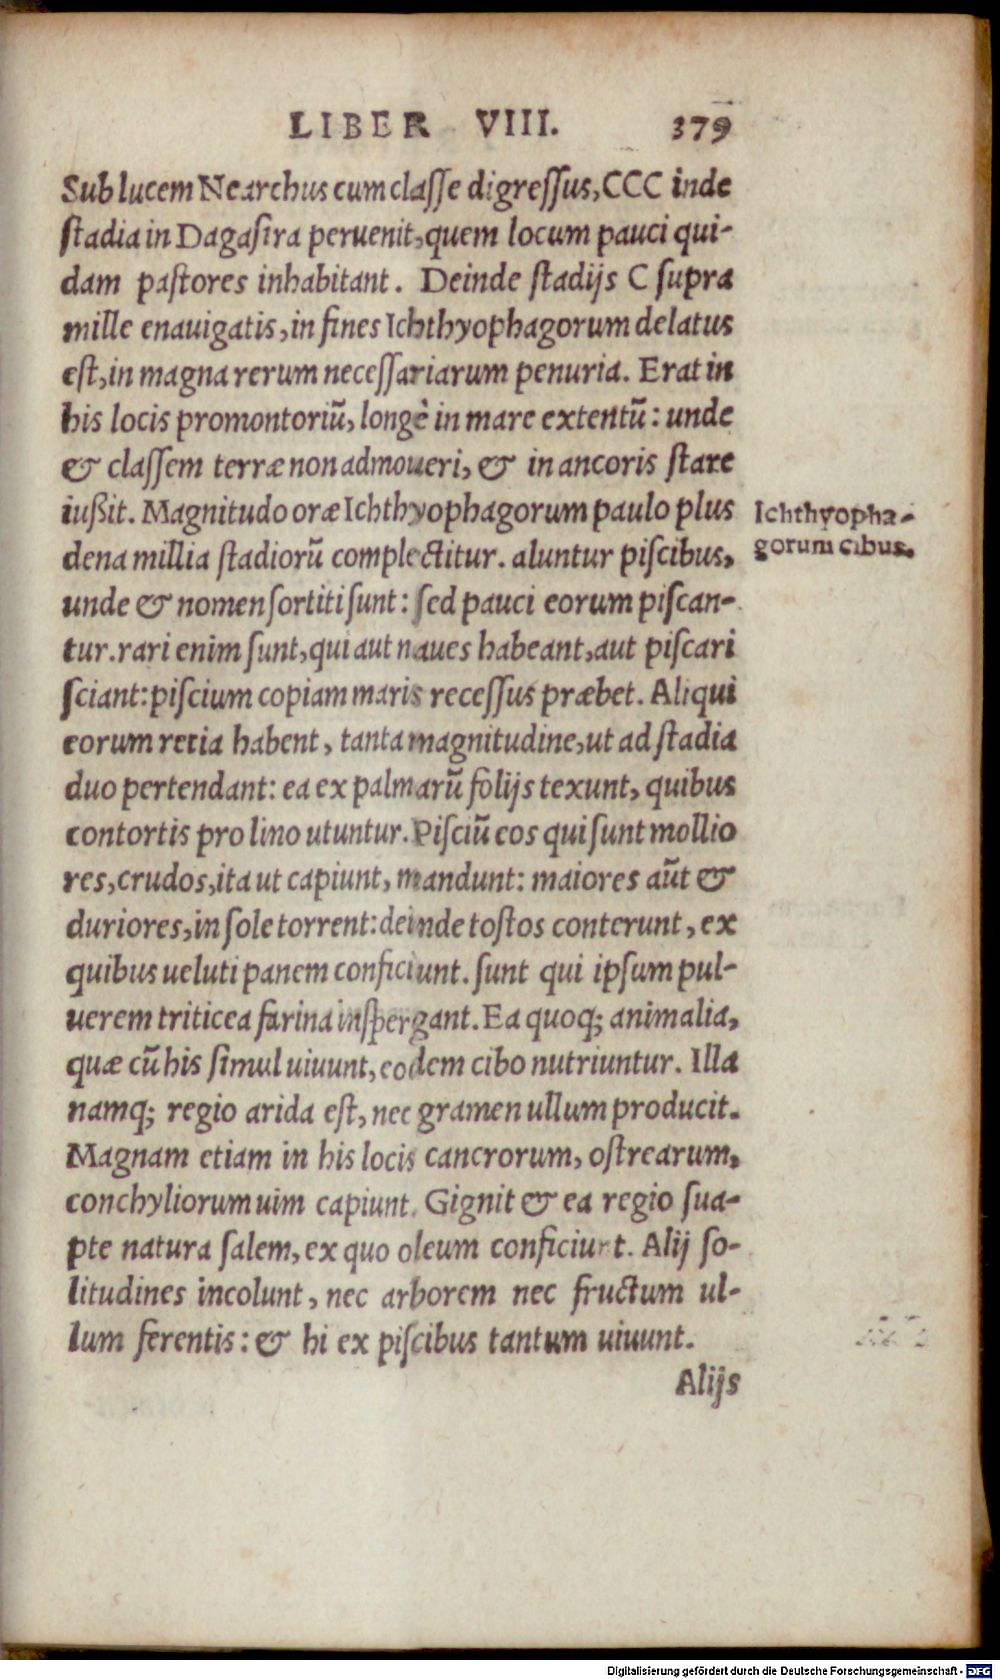 LIBER VIII. 379
Sub lucem Nearchus cum classe digressus, CCC inde
stadia in Dagasira peruenit, quem locum pauci qui-
dam pastores inhabitant. Deinde stadijs C supra
mille enauigatis, in fines Ichthyophagorum delatus
est, in magna rerum necessariarum penuria. Erat in
his locis promontoriũ, longè in mare extentũ: unde
& classem terræ non admoueri, & in ancoris stare
iußit. Magnitudo oræ Ichthyophagorum paulo plus
dena millia stadiorũ complectitur. aluntur piscibus,
unde & nomen sortiti sunt: sed pauci eorum piscan-
tur. rari enim sunt, qui aut naues habeant, aut piscari
sciant: piscium copiam maris recessus præbet. Aliqui
eorum retia habent, tanta magnitudine, ut ad stadia
duo pertendant: ea ex palmarũ folijs texunt, quibus
contortis pro lino utuntur. Pisciũ eos qui sunt mollio
res, crudos, ita ut capiunt, mandunt: maiores aũt &
duriores, in sole torrent: deinde tostos conterunt, ex
quibus ueluti panem conficiunt. sunt qui ipsum pul-
uerem triticea farina inspergant. Ea quoq; animalia,
quæ cũ his simul uiuunt, eodem cibo nutriuntur. Illa
namq; regio arida est, nec gramen ullum producit.
Magnam etiam in his locis cancrorum, ostrearum,
conchyliorum uim capiunt. Gignit & ea regio sua-
pte natura salem, ex quo oleum conficiunt. Alij so-
litudines incolunt, nec arborem nec fructum ul-
lum ferentis: & hi ex piscibus tantum uiuunt.
Alijs
Ichthyopha-
gorum cibus.
Digitalisierung gefördert durch die Deutsche Forschungsgemeinschaft - DFG